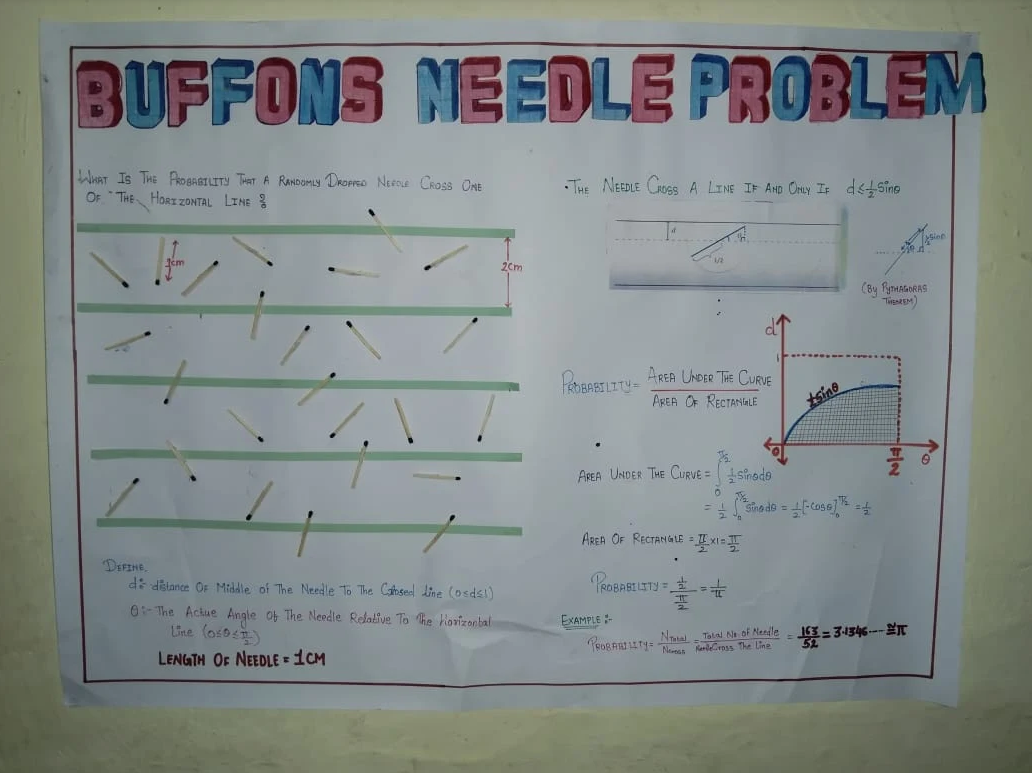 BUFFONS NEEDLE PROBLEM
WHAT IS THE PROBABILITY THAT A RANDOMLY DROPPED NEEDLE CROSS ONE
OF THE HORIZONTAL LINE ?
1cm
2cm
DEFINE.
d:- distance Of Middle of The Needle To The Closed Line (0≤d≤1)
θ:- The Actue Angle Of The Needle Relative To The Horizontal
Line (0≤θ≤π/2)
LENGTH OF NEEDLE = 1CM
• THE NEEDLE CROSS A LINE IF AND ONLY IF d≤1/2 sinθ
d
1/2
1/2 sinθ
(BY PYTHAGORAS
THEOREM)
PROBABILITY = AREA UNDER THE CURVE / AREA OF RECTANGLE
d
1
1/2 sinθ
0
π/2
θ
AREA UNDER THE CURVE = ∫₀^π/2 1/2 sinθdθ
= 1/2 ∫₀^π/2 sinθdθ = 1/2 [-cosθ]₀^π/2 = 1/2
AREA OF RECTANGLE = π/2 ×1 = π/2
PROBABILITY = 1/2 / π/2 = 1/π
EXAMPLE :-
PROBABILITY = NTotal / NCross = Total No. of Needle / Needle Cross The Line = 163/52 = 3.1346---- ≅ π